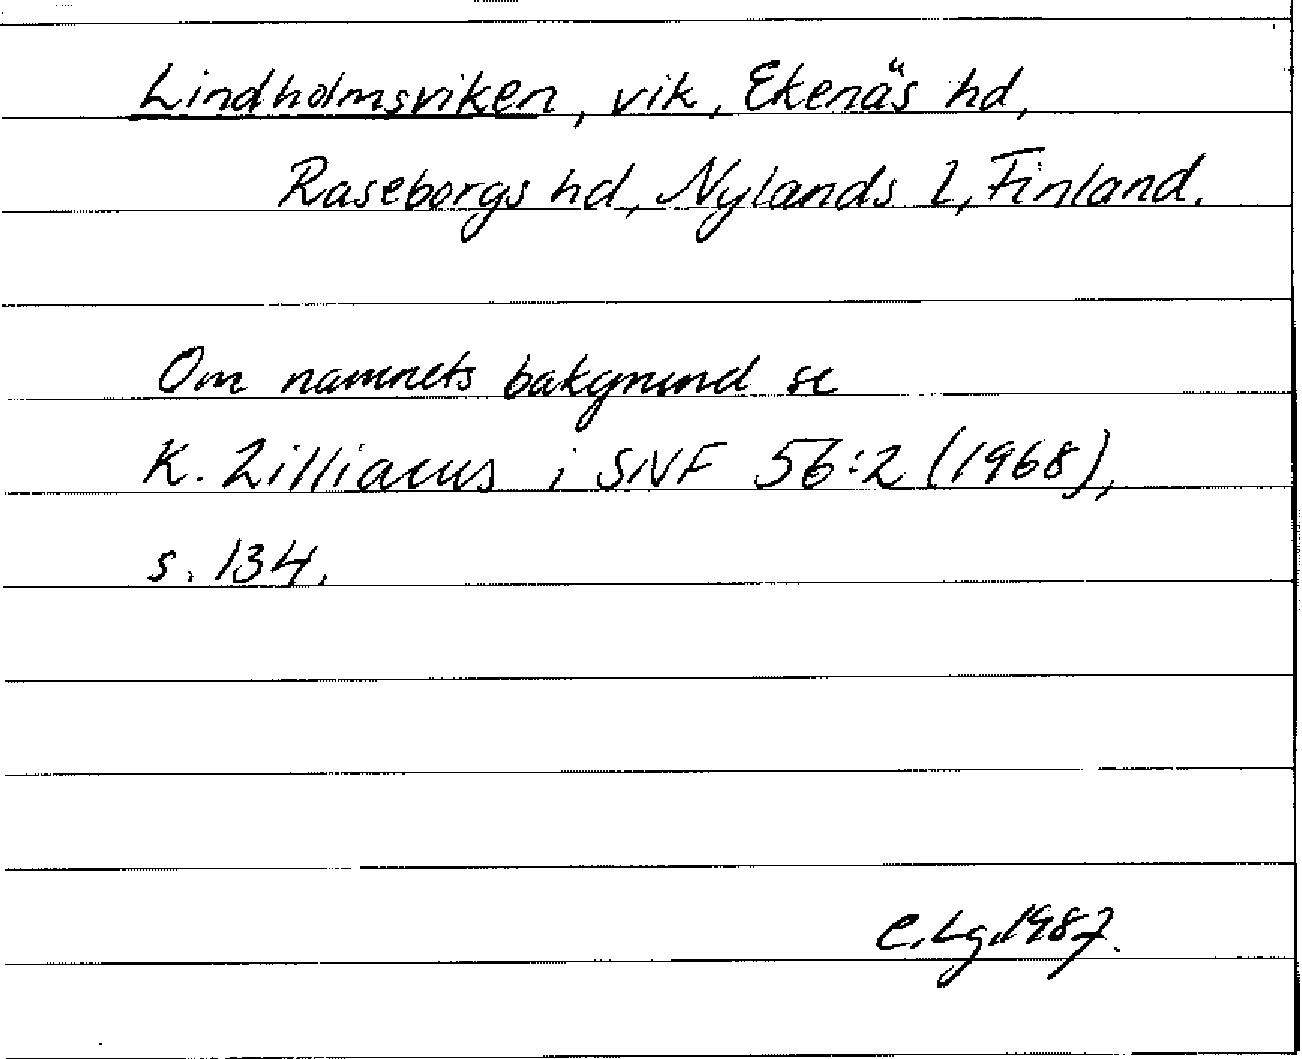 Lindholmsviken, vik, Ekenäs hd,
Raseborgs hd, Nylands L, Finland.
Om namnets bakgrund se
K. Zilliacus i SNF 56:2 (1968),
s. 134.
C.Lg.1987.